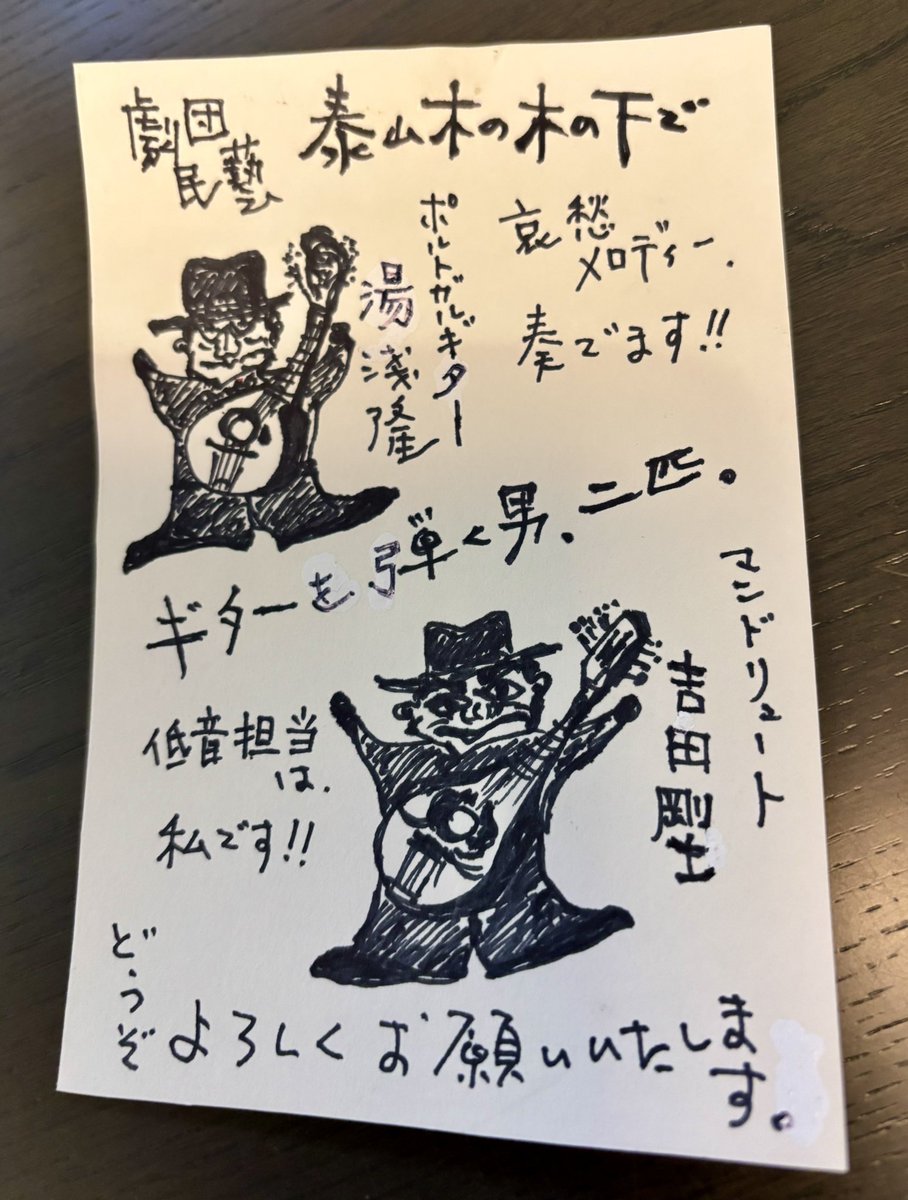 劇団民藝
泰山木の木の下で
哀愁
メロディー、
奏でます!!
ポルトガルギター
湯浅隆
ギターを弾く男、二匹。
マンドリュート
吉田剛士
低音担当
は、
私です!!
どうぞ
よろしくお願いいたします。